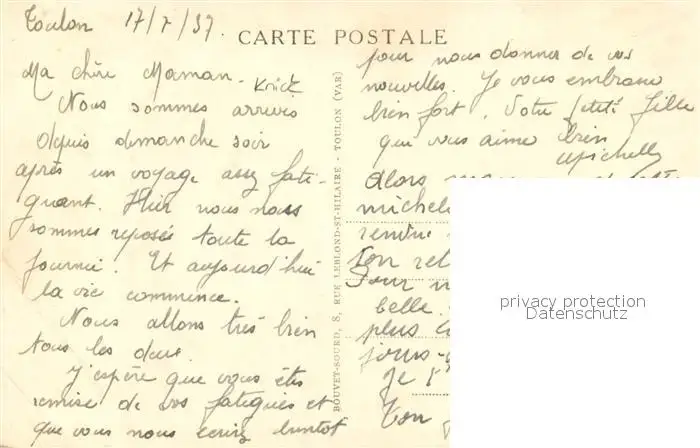 Toulon 17/7/37.
CARTE POSTALE
Ma chère Maman -
Nous sommes arrivés
depuis dimanche soir
après un voyage assez fati-
guant. Hier nous nous
sommes reposée toute la
journée. Et aujourd'hui
la vie commence.
Nous allons très bien
tous les deux.
J'espère que vous êtes
remise de vos fatigues et
que vous nous écrirez bientot
BOUVET-SOURD, 8, RUE LEBLOND-ST-HILAIRE - TOULON (VAR)
pour nous donner de vos
nouvelles. Je vous embrasse
bien fort. Votre petite fille
qui vous aime bien
Alors
michel
rendre
ton ret
Pour
belle.
plus
jours-
Je
Ton
privacy protection
Datenschutz